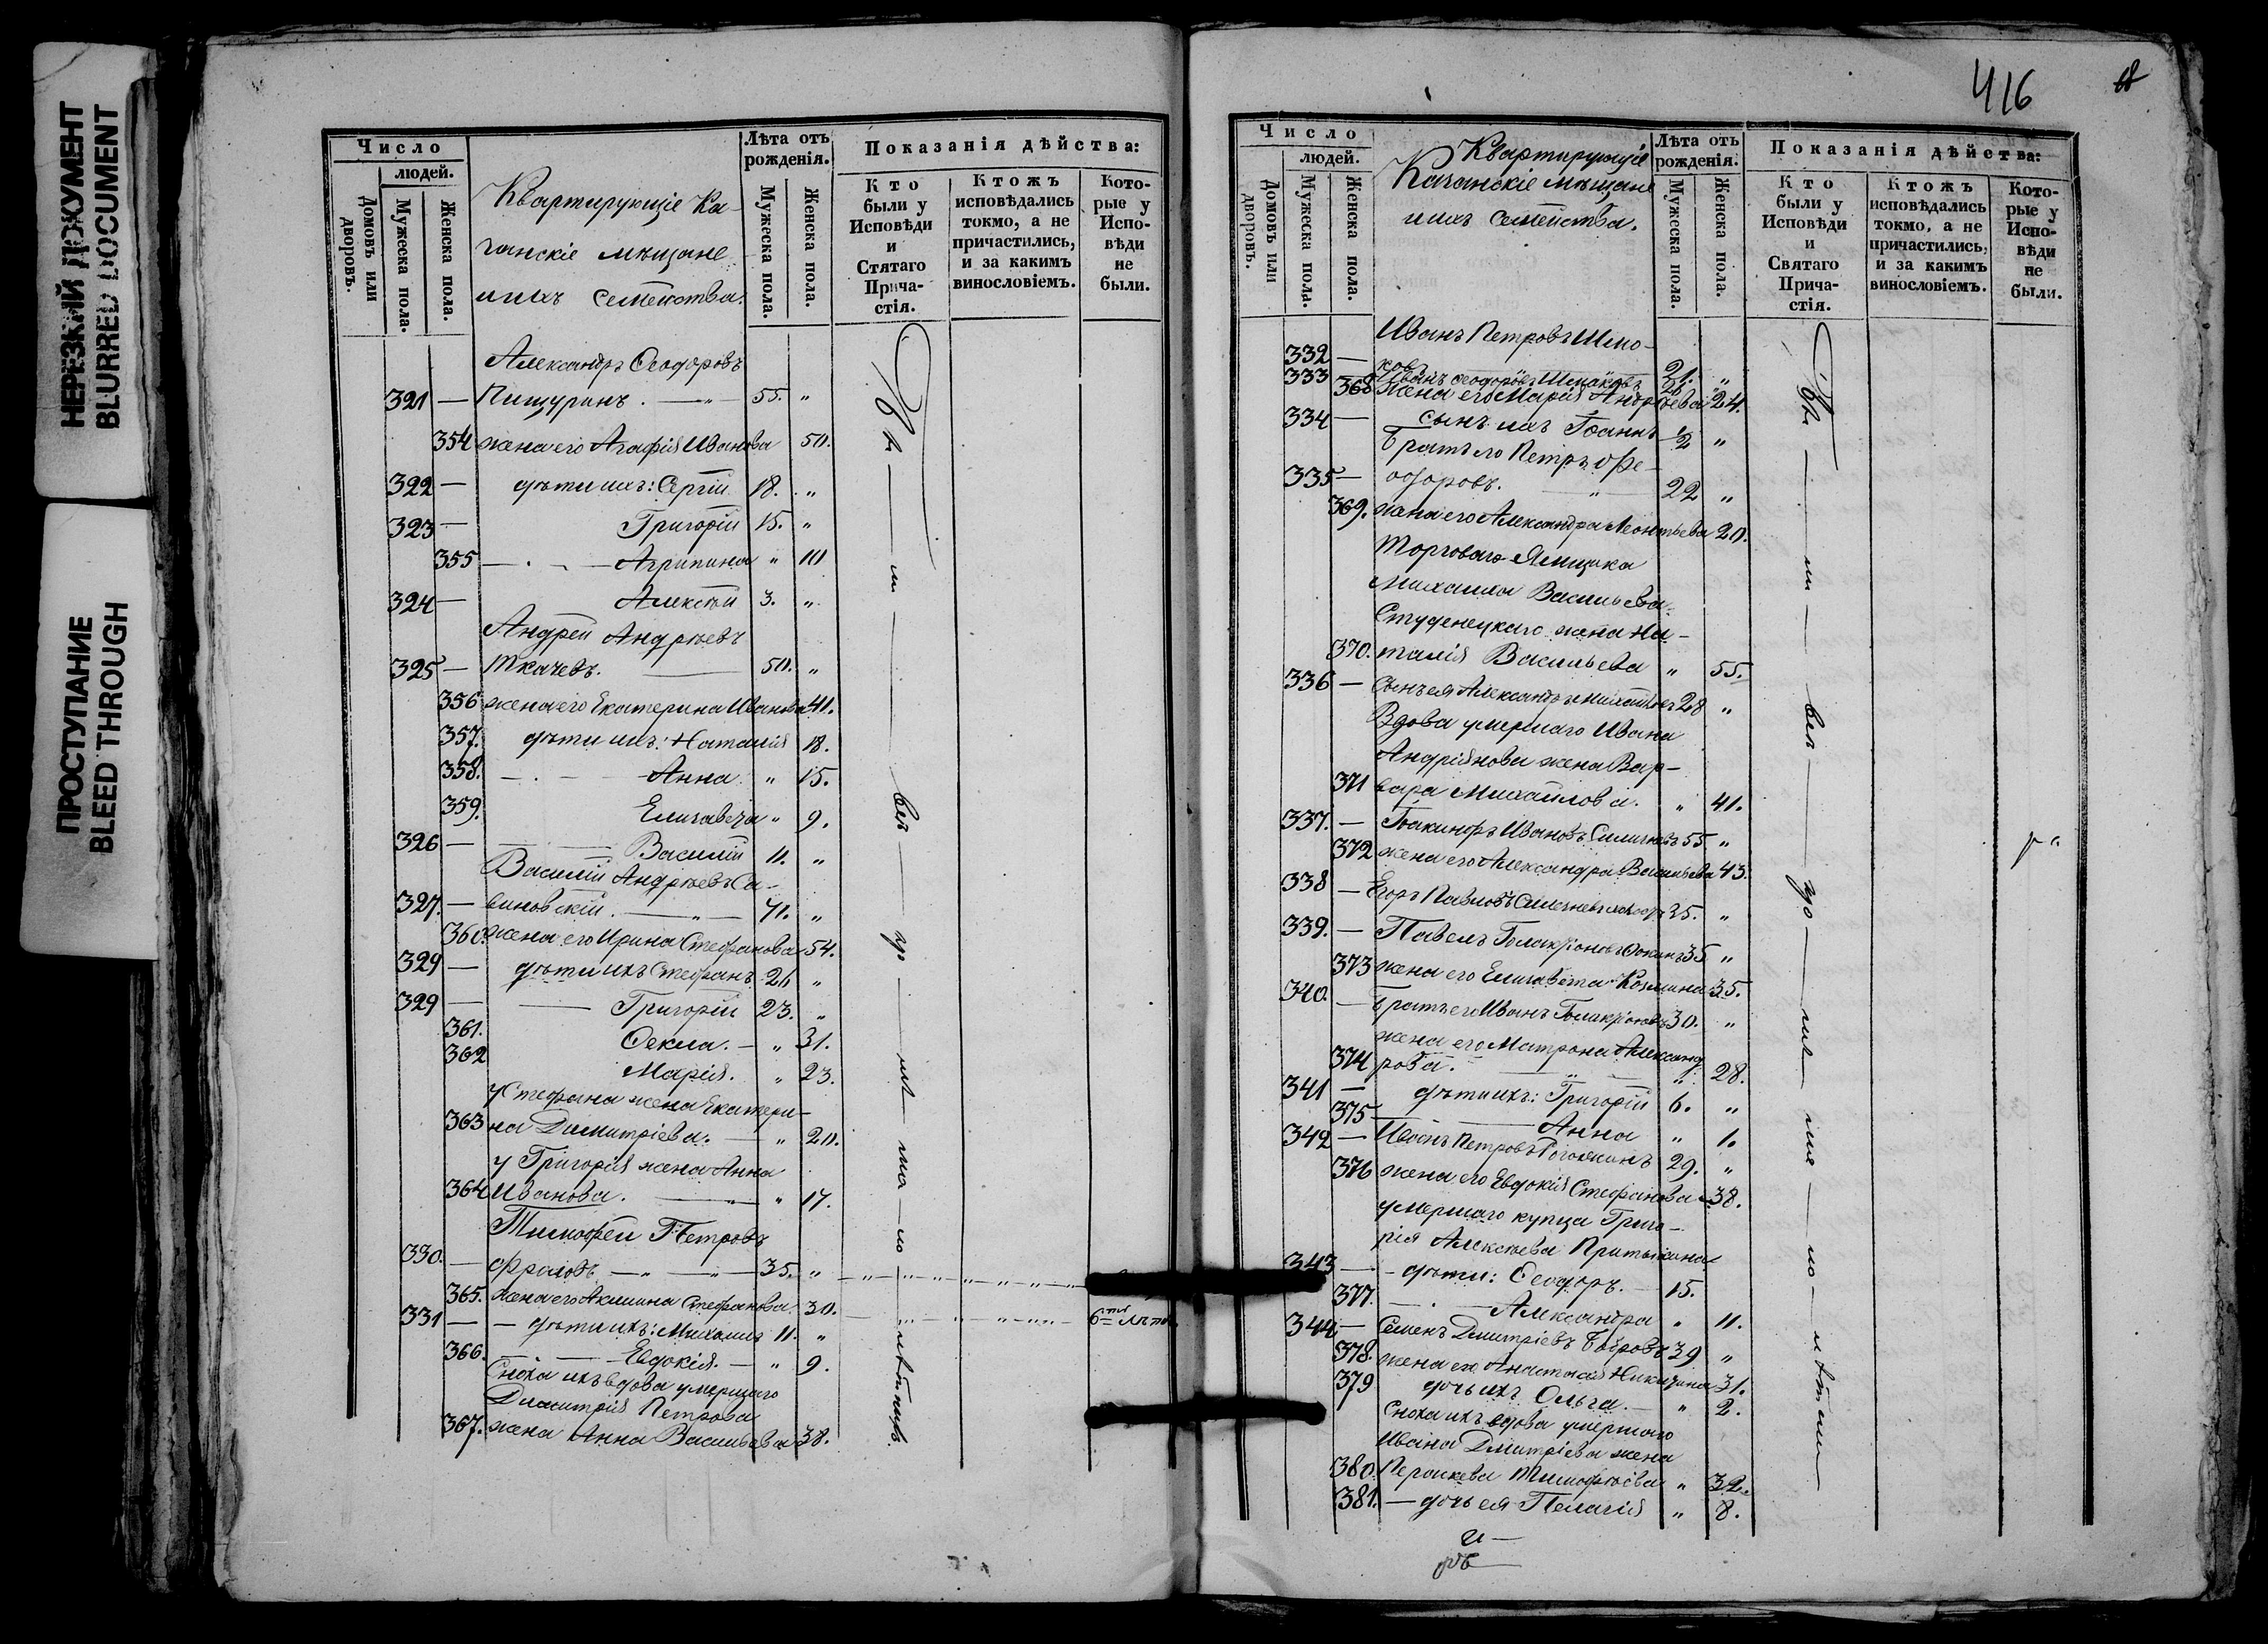 НЕРЕЗКИЙ ДОКУМЕНТ
BLURRED DOCUMENT
ПРОСТУПАНИЕ
BLEED THROUGH
Число
людей.
Домовъ или дворовъ.
Мужеска пола.
Женска пола.
Квартирующіе Ка-
чанскіе мѣщане
и ихъ семейства.
Лѣта отъ рожденія.
Мужеска пола.
Женска пола.
Показанія дѣйства:
Кто были у Исповѣди и Стятаго Прича-стія.
Ктожъ исповѣдались токмо, а не причастились, и за какимъ винословіемъ.
Кото-рые у Испо-вѣди не были.
Александръ Ѳеодоровъ
321 — Пищуринъ. — „ 55. „
354 жена его Агафія Иванова 50.
322 — дѣти ихъ: Сергій 18. „
323 — Григорій 15. „
355 — Агрипина „ 10
324 — Алексѣй 3. „
Андрей Андреевъ
325 — Ткачевъ. — 50. „
356 жена его Екатерина Иванова 41.
357. дѣти ихъ: Наталія 18.
358. — Анна „ 15.
359. Елизавета „ 9.
326 — Василій 11. „
Василій Андреевъ Са-
327. — виновскій. — „ — 71. „
360. жена его Ирина Стефанова 54.
329 — дѣти ихъ Стефанъ 26 „
329 — Григорій 23. „
361. Ѳекла. — „ 31.
362 Марія. „ 23.
у Стефана жена Екатери-
363 на Димитріева. — „ 20.
у Григорія жена Анна
364 Иванова. — „ 17.
Тимофей Петровъ
330. — Фроловъ — „ — „ — 35. „
365. жена его Акилина Стефанова 30.
331 — дѣти ихъ: Михаилъ 11. „ 6ть лѣтъ
366. — Евдокія. — „ 9.
Сноха ихъ вдова умершаго
Димитрія Петрова
367. жена Анна Васильева 38.
416
Число
людей.
Домовъ или дворовъ.
Мужеска пола.
Женска пола.
Квартирующіе
Качанскіе мѣщане
и ихъ семейства.
Лѣта отъ рожденія.
Мужеска пола.
Женска пола.
Показанія дѣйства:
Кто были у Исповѣди и Святаго Прича-стія.
Ктожъ исповѣдались токмо, а не причастились, и за какимъ винословіемъ.
Кото-рые у Испо-вѣди не были.
Иванъ Петровъ Шмо-
332 — ковъ 21. „
333 — Иванъ Ѳеодоровъ
368 жена его Марія Андреева 24.
334 — сынъ ихъ Іоаннъ ½ „
братъ его Петръ Ѳе-
335 — одоровъ. — „ 22 „
369. жена его Александра Леонтьева 20.
Торговаго Ямщика
Михаила Васильева
Студенецкаго жена На-
370. талія Васильева „ 55.
336 — сынъ ея Александръ Михайловъ 28 „
Вдова умершаго Ивана
Андріянова жена Вар-
371 вара Михайлова. „ 41.
337. — Іоакинфъ Ивановъ 55 „
372 жена его Александра Васильева 43.
338 — Егоръ Павловъ 35. „
339. — Павелъ 35 „
373 жена его Елизавета Козмина 35.
340. — братъ его Иванъ 30. „
жена его Матрона Александ
374 рова. — „ 28.
341 — дѣти ихъ: Григорій 6. „
375 — Анна „ 1.
342 — Иванъ Петровъ Рогожкинъ 29. „
376 жена его Евдокія Стефанова 38.
умершаго купца Григо-
рія Алексѣева
343 — дѣти: Ѳеодоръ. — 15.
377. — Александра „ 11.
344 — Семенъ Дмитріевъ Бобровъ 39 „
378. жена его Анастасія Никитина 31.
379 дочь ихъ Ольга. — „ 2.
Сноха ихъ вдова умершаго
Ивана Дмитріева жена
380. Тимофеева „ 32.
381. — дочь ея Пелагія „ 8.